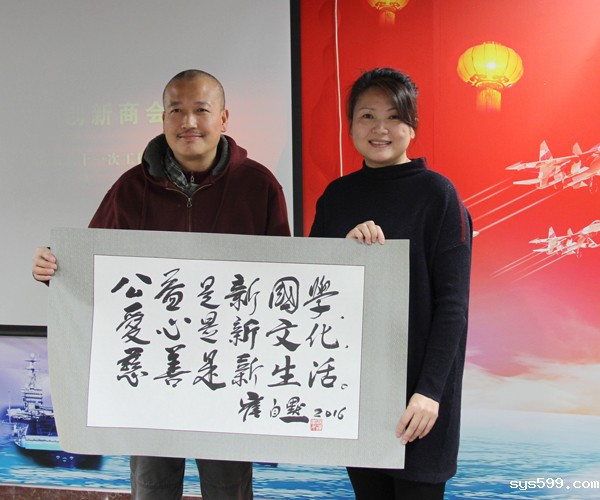 新商会
一次
公益是新國學.
愛心是新文化.
慈善是新生活。
崔自默 2016
sys599.com